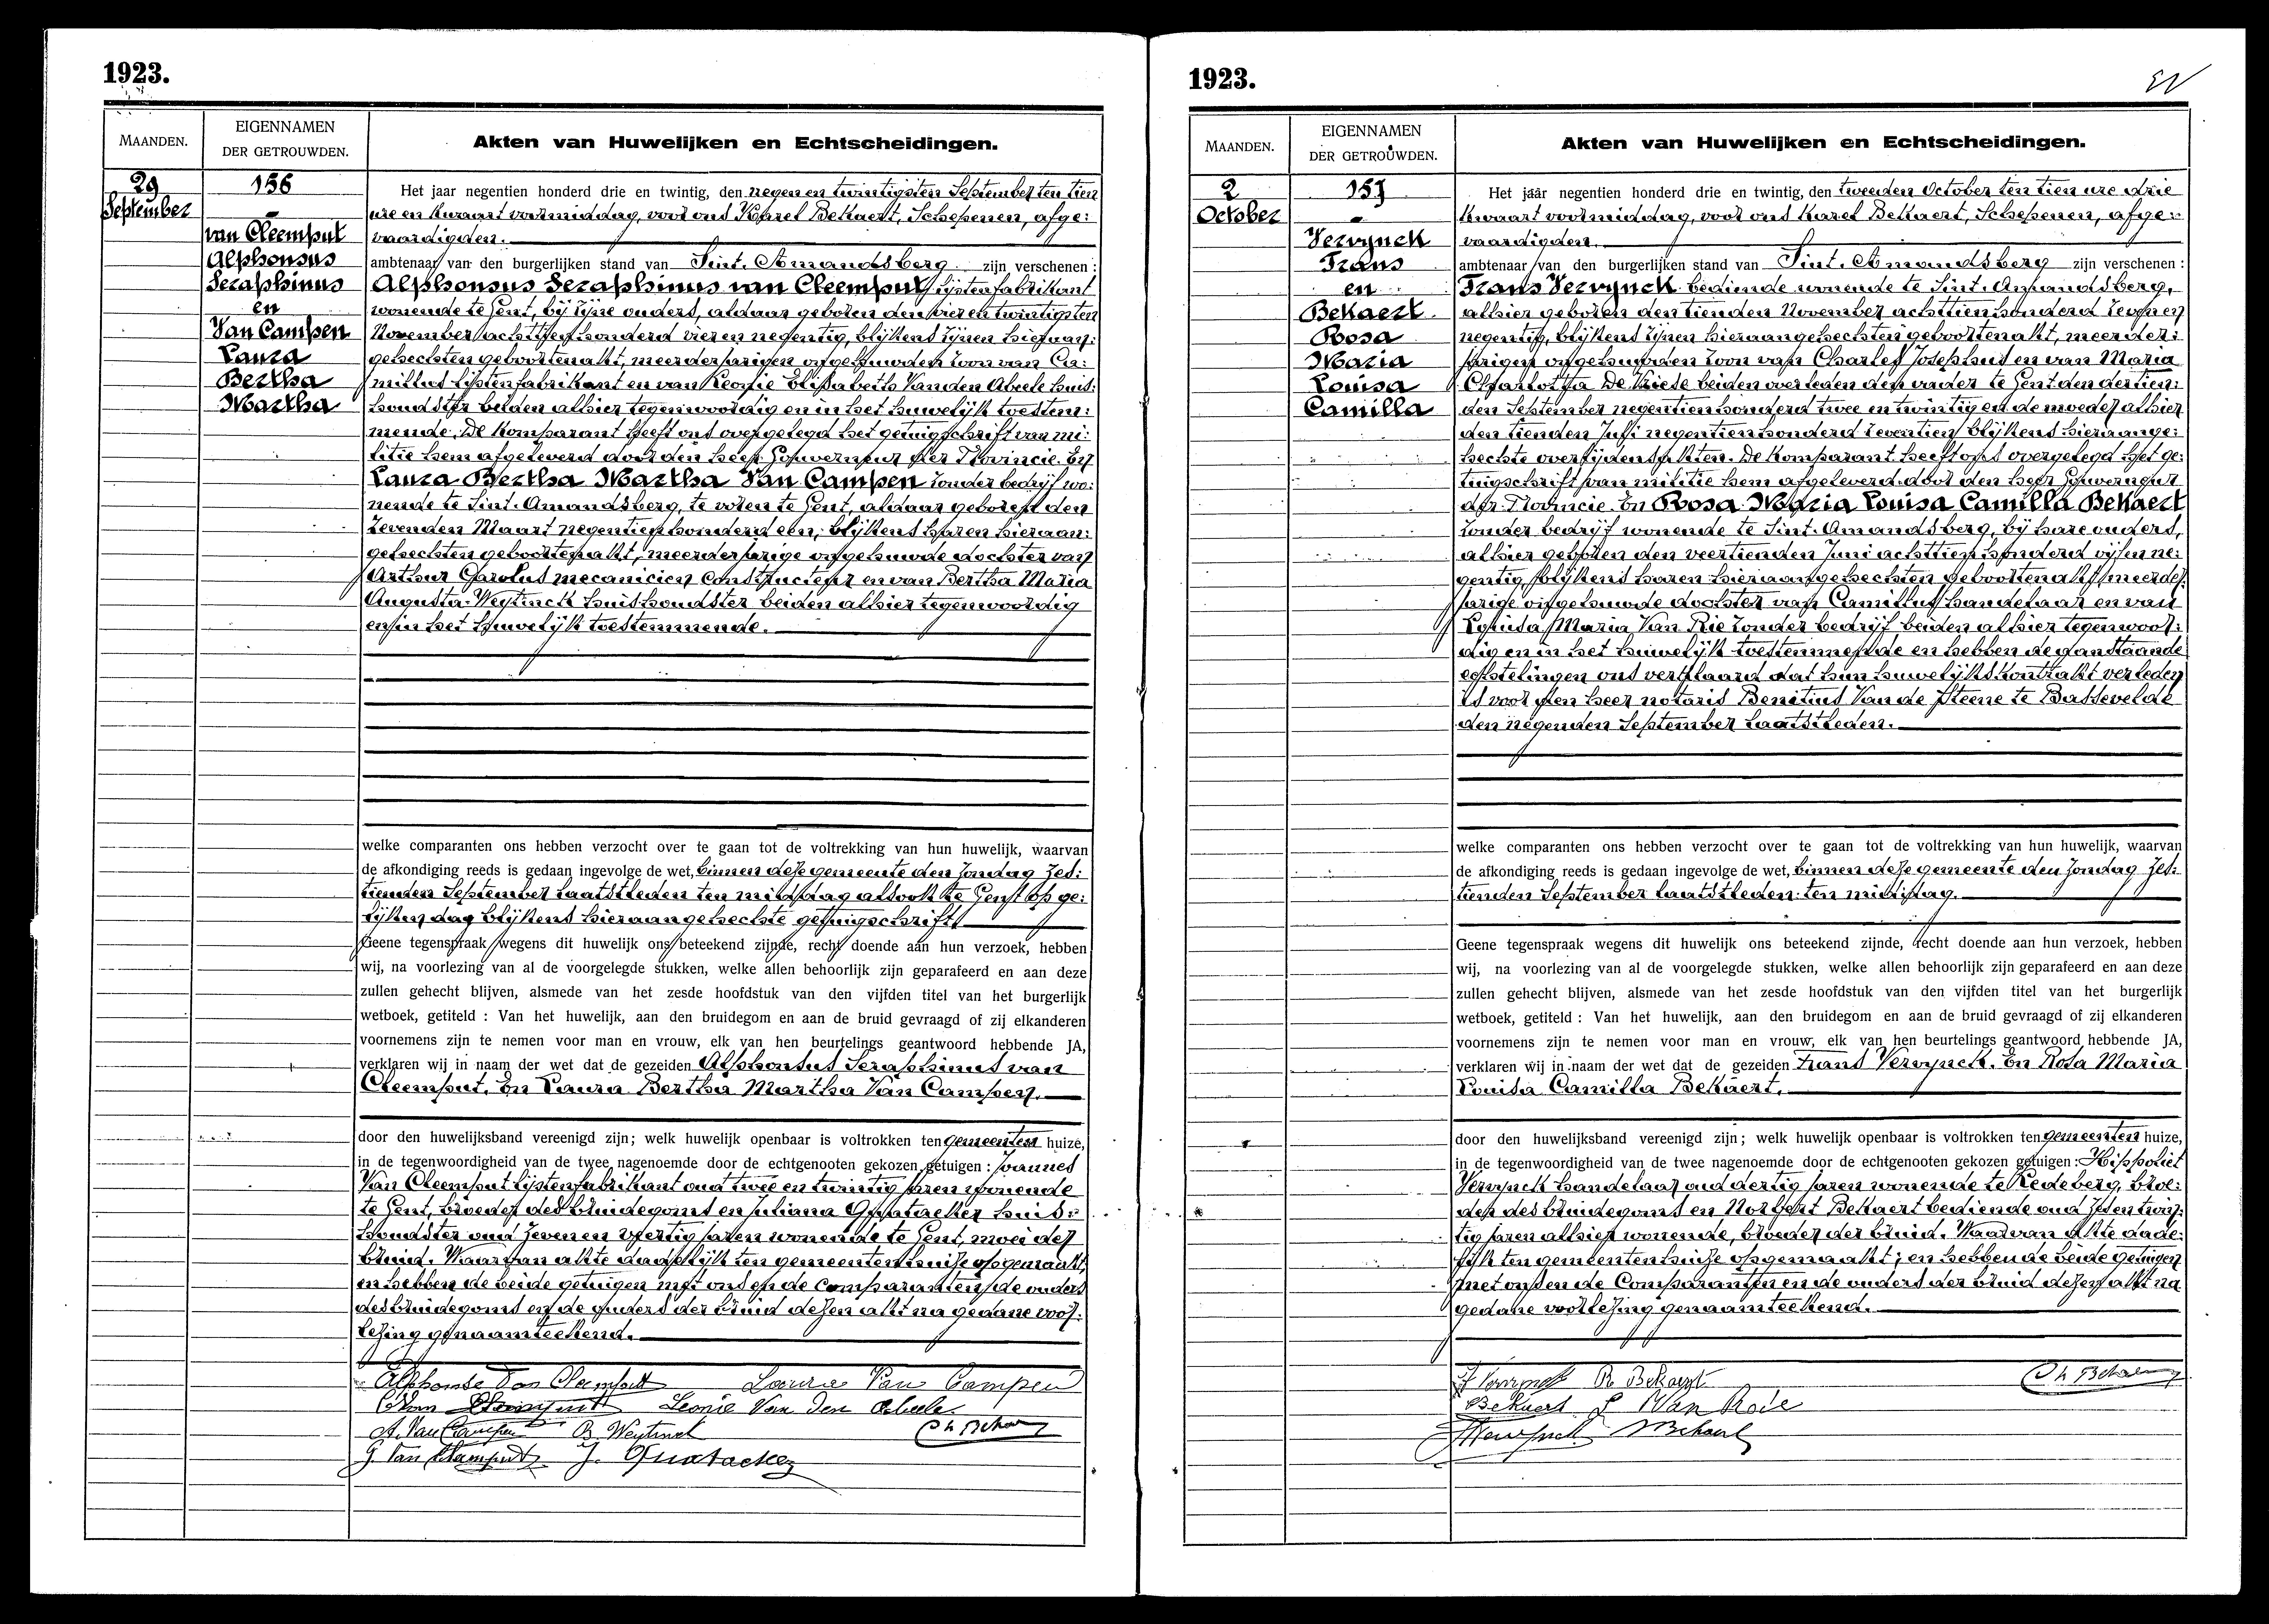 1923.
MAANDEN.
EIGENNAMEN
DER GETROUWDEN.
Akten van Huwelijken en Echtscheidingen.
29
September
156
van Cleemput
Alphonsus
Seraphinus
en
Van Campen
Laura
Bertha
Martha
Het jaar negentien honderd drie en twintig, den negen en twintigsten September ten tien
ure en kwaart voormiddag, voor ons Karel Bekaert, Schepenen, afge:
vaardigden.
ambtenaar van den burgerlijken stand van Sint. Amandsberg zijn verschenen :
Alphonsus Seraphinus van Cleemput lijstenfabrikant
wonende te Gent, bij zijne ouders, aldaar geboren den vier en twintigsten
November achttien honderd vier en negentig, blijkens zijnen hieraan:
gehechten geboortenakt, meerderjarigen ongehuwden zoon van Ca:
millus lijstenfabrikant en van Leonie Elisabeth Vanden Abeele huis:
houdster beiden alhier tegenwoordig en in het huwelijk toestem:
mende. De komparant heeft ons overgelegd het getuigschrift van mi:
litie hem afgeleverd door den heer Gouverneur der Provincie. En
Laura Bertha Martha Van Campen zonder bedrijf wo:
nende te Sint. Amandsberg, te voren te Gent, aldaar geboren den
zevenden Maart negentien honderd een, blijkens haren hieraan:
gehechten geboortenakt, meerderjarige ongehuwde dochter van
Arthur Carolus mecanicien constructeur en van Bertha Maria
Augusta Weytinck huishoudster beiden alhier tegenwoordig
en in het huwelijk toestemmende.
welke comparanten ons hebben verzocht over te gaan tot de voltrekking van hun huwelijk, waarvan
de afkondiging reeds is gedaan ingevolge de wet, binnen deze gemeente den Zondag zes:
tienden September laatstleden ten middag alsook te Gent op ge:
lijken dag blijkens hieraangehechte getuigschrift
Geene tegenspraak wegens dit huwelijk ons beteekend zijnde, recht doende aan hun verzoek, hebben
wij, na voorlezing van al de voorgelegde stukken, welke allen behoorlijk zijn geparafeerd en aan deze
zullen gehecht blijven, alsmede van het zesde hoofdstuk van den vijfden titel van het burgerlijk
wetboek, getiteld : Van het huwelijk, aan den bruidegom en aan de bruid gevraagd of zij elkanderen
voornemens zijn te nemen voor man en vrouw, elk van hen beurtelings geantwoord hebbende JA,
verklaren wij in naam der wet dat de gezeiden Alphonsus Seraphinus van
Cleemput. En Laura Bertha Martha Van Campen.
door den huwelijksband vereenigd zijn; welk huwelijk openbaar is voltrokken ten gemeenten huize,
in de tegenwoordigheid van de twee nagenoemde door de echtgenooten gekozen getuigen : Joannes
Van Cleemput lijstenfabrikant oud twee en twintig jaren wonende
te Gent, broeder des bruidegoms en Juliana Quatacker huis:
houdster oud zeven en veertig jaren wonende te Gent, moei der
bruid. Waarvan akte dadelijk ten gemeentenhuize opgemaakt,
en hebben de beide getuigen met ons en de comparanten, de ouders
des bruidegoms en de ouders der bruid dezen akt na gedane voor:
lezing genaamteekend.
Alphonse Van Cleemput Laura Van Campen
Cleemput Leonie Van Den Abeele
A. Van Campen B. Weytinck Ch Bekaert
G. Van Cleemput J. Quatacker
1923.
MAANDEN.
EIGENNAMEN
DER GETROUWDEN.
Akten van Huwelijken en Echtscheidingen.
2
October
157
Vervynck
Frans
en
Bekaert
Rosa
Maria
Louisa
Camilla
Het jaar negentien honderd drie en twintig, den tweeden October ten tien ure drie
kwaart voormiddag, voor ons Karel Bekaert, Schepenen, afge:
vaardigden.
ambtenaar van den burgerlijken stand van Sint. Amandsberg zijn verschenen :
Frans Vervynck bediende wonende te Sint. Amandsberg,
alhier geboren den tienden November achttien honderd zeven en
negentig, blijkens zijnen hieraangehechten geboortenakt, meerder:
jarigen ongehuwden zoon van Charles Josephus en van Maria
Charlotta De Vriese beiden overleden den vader te Gent den dertien:
den September negentien honderd twee en twintig en de moeder alhier
den tienden Juli negentien honderd zeventien blijkens hieraange:
hechte overlijdensakten. De komparant heeft ons overgelegd het ge:
tuigschrift van militie hem afgeleverd door den heer Gouverneur
der Provincie. En Rosa Maria Louisa Camilla Bekaert
zonder bedrijf wonende te Sint. Amandsberg, bij hare ouders,
alhier geboren den veertienden Juni achttien honderd vijf en ne:
gentig, blijkens haren hieraangehechten geboortenakt, meerder:
jarige ongehuwde dochter van Camillus handelaar en van
Louisa Maria Van Rie zonder bedrijf beiden alhier tegenwoor:
dig en in het huwelijk toestemmende en hebben de aanstaande
echtelingen ons verklaard dat hun huwelijkskontrakt verleden
is voor den heer notaris Benitius Van de Steene te Bassevelde
den negenden September laatstleden.
welke comparanten ons hebben verzocht over te gaan tot de voltrekking van hun huwelijk, waarvan
de afkondiging reeds is gedaan ingevolge de wet, binnen deze gemeente den Zondag zes:
tienden September laatstleden ten middag.
Geene tegenspraak wegens dit huwelijk ons beteekend zijnde, recht doende aan hun verzoek, hebben
wij, na voorlezing van al de voorgelegde stukken, welke allen behoorlijk zijn geparafeerd en aan deze
zullen gehecht blijven, alsmede van het zesde hoofdstuk van den vijfden titel van het burgerlijk
wetboek, getiteld : Van het huwelijk, aan den bruidegom en aan de bruid gevraagd of zij elkanderen
voornemens zijn te nemen voor man en vrouw, elk van hen beurtelings geantwoord hebbende JA,
verklaren wij in naam der wet dat de gezeiden Frans Vervynck. En Rosa Maria
Louisa Camilla Bekaert.
door den huwelijksband vereenigd zijn; welk huwelijk openbaar is voltrokken ten gemeenten huize,
in de tegenwoordigheid van de twee nagenoemde door de echtgenooten gekozen getuigen : Hippoliet
Vervynck handelaar oud dertig jaren wonende te Ledeberg, broe:
der des bruidegoms en Norbert Bekaert bediende oud zes en twin:
tig jaren alhier wonende, broeder der bruid. Waarvan akte dade:
lijk ten gemeentenhuize opgemaakt; en hebben de beide getuigen
met ons en de Comparanten en de ouders der bruid dezen akt na
gedane voorlezing genaamteekend.
F Vervynck R. Bekaert Ch Bekaert
Bekaert L Van Rie
H Vervynck N Bekaert